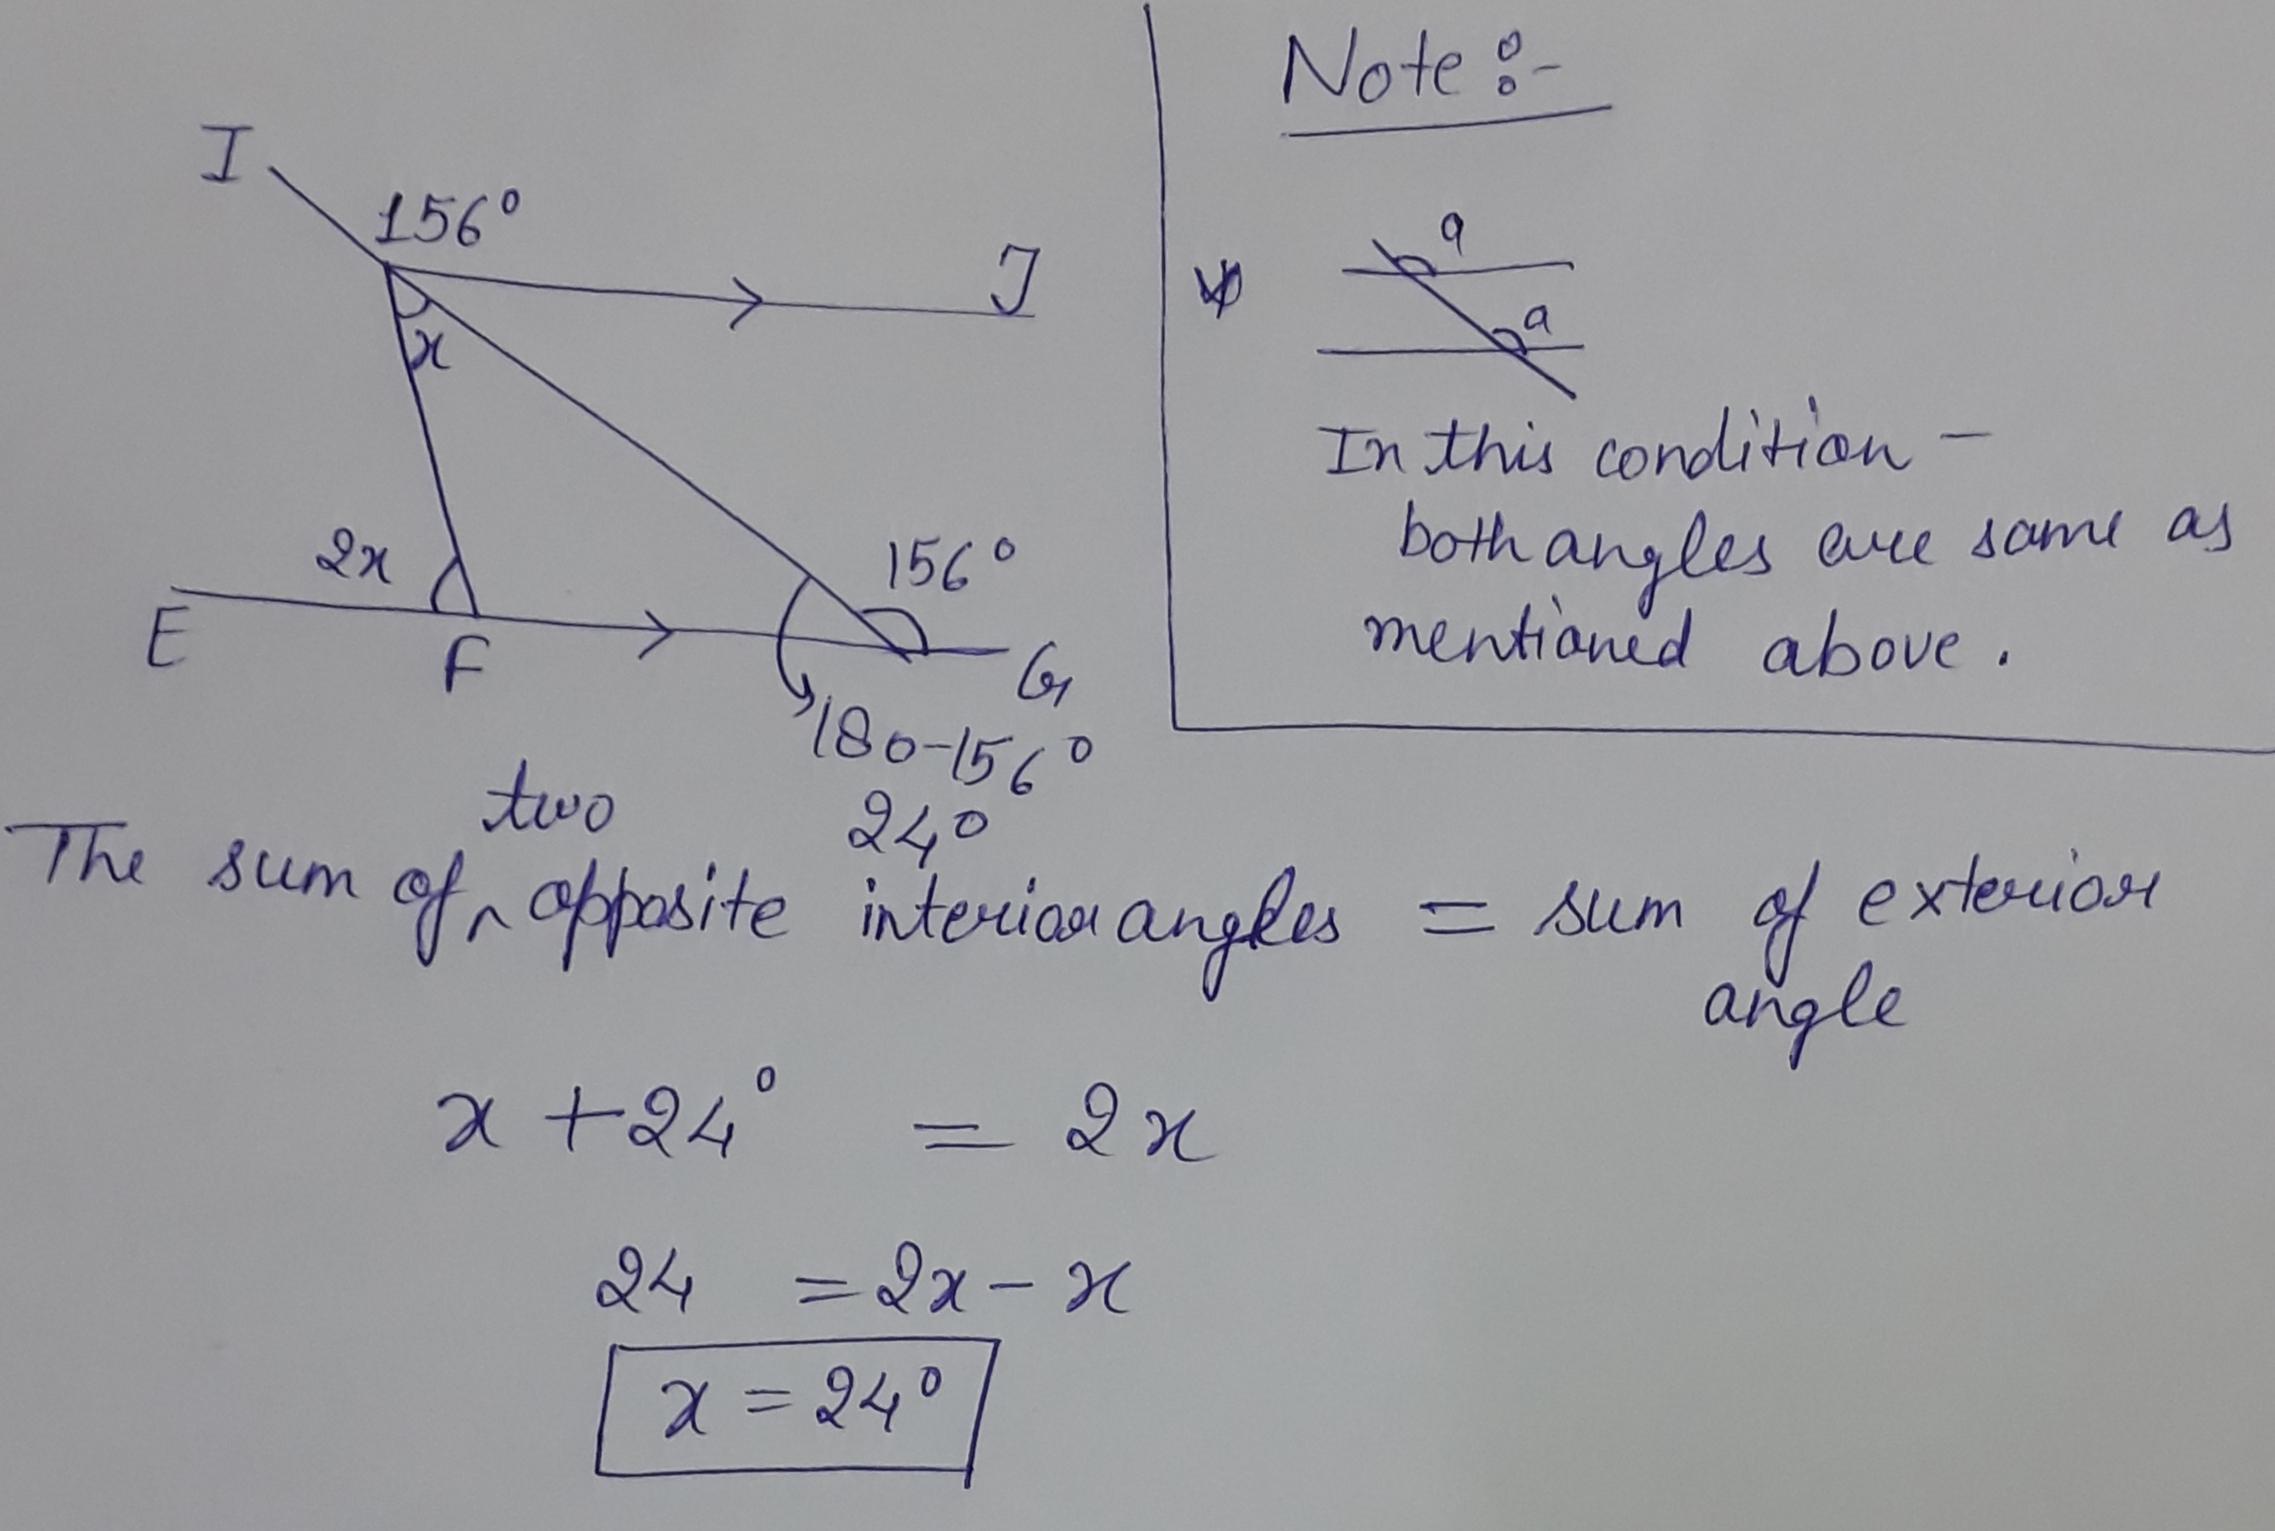 I
156°
J
x
2x
156°
E
F
G
180-156°
24°
Note :-
a
a
In this condition -
both angles are same as
mentioned above.
two
The sum of ^ opposite interior angles = sum of exterior
angle
x + 24° = 2x
24 = 2x - x
x = 24°